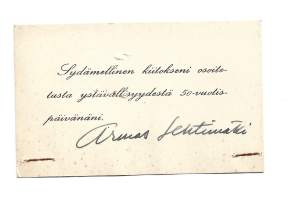 Sydämellinen kiitokseni osoite-
tusta ystävällisyydestä 50-vuotis-
päivänäni.
Armas Lehtimäki